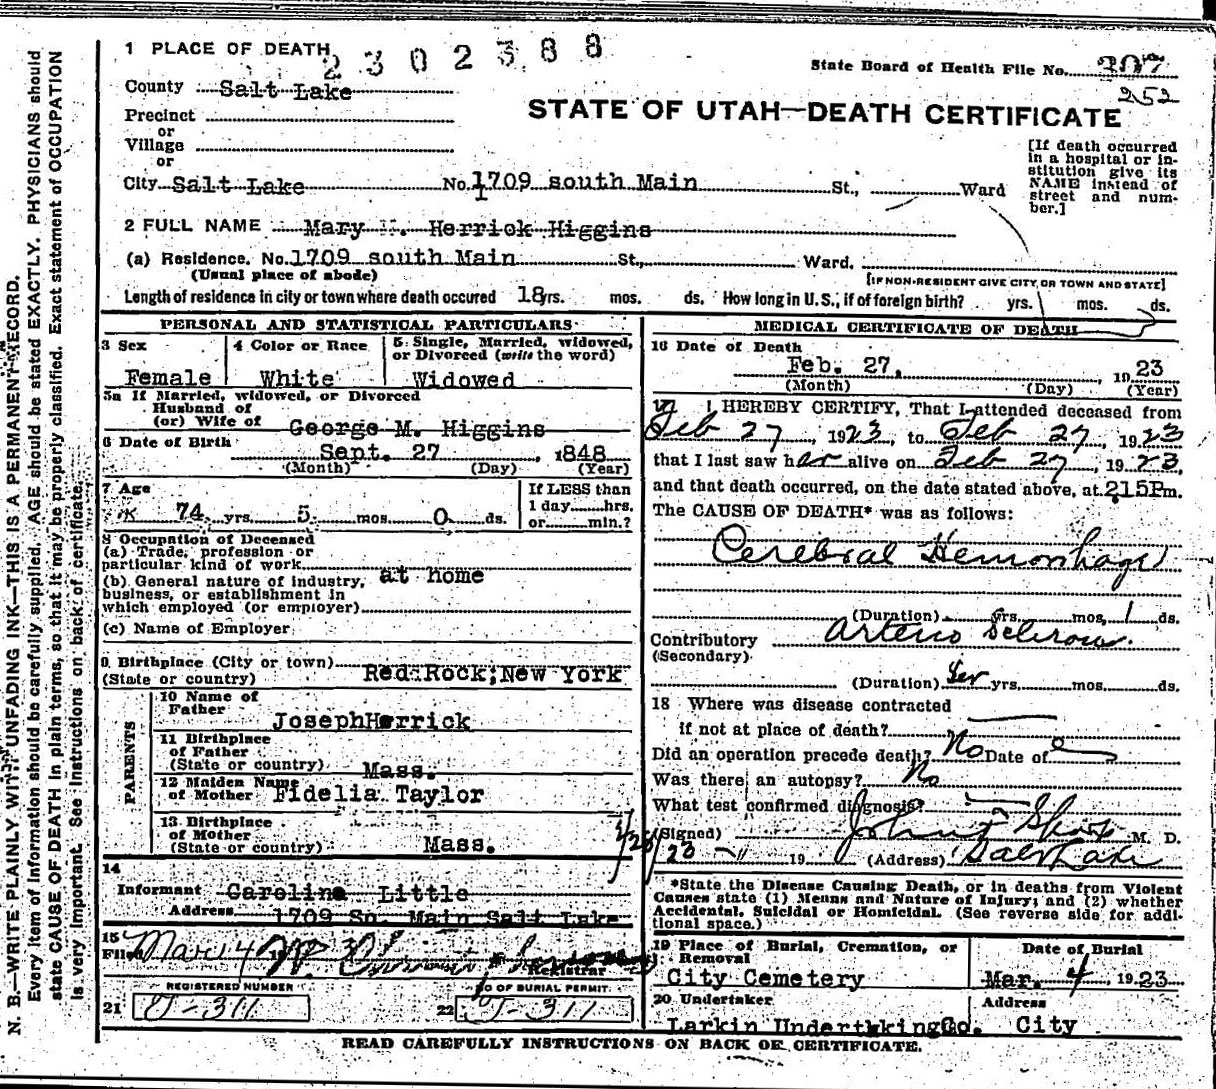 1 PLACE OF DEATH
2302388
State Board of Health File No.
252
County Salt Lake
STATE OF UTAH—DEATH CERTIFICATE
Precinct
or
Village
or
[If death occurred in a hospital or institution give its NAME instead of street and number.]
City Salt Lake No. 1709 south Main St., Ward
2 FULL NAME Mary M. Herrick Higgins
(a) Residence. No. 1709 south Main St., Ward.
(Usual place of abode) [IF NON-RESIDENT GIVE CITY OR TOWN AND STATE]
Length of residence in city or town where death occured 18 yrs. mos. ds. How long in U. S., if of foreign birth? yrs. mos. ds.
PERSONAL AND STATISTICAL PARTICULARS
3 Sex 4 Color or Race 5 Single, Married, widowed, or Divorced (write the word)
Female White Widowed
5a If Married, widowed, or Divorced
Husband of
(or) Wife of George M. Higgins
6 Date of Birth
Sept. 27, 1848
(Month) (Day) (Year)
7 Age If LESS than
74 yrs. 5 mos. 0 ds. 1 day hrs.
or min.?
8 Occupation of Deceased
(a) Trade, profession or
particular kind of work
(b) General nature of industry, at home
business, or establishment in
which employed (or employer)
(c) Name of Employer
9 Birthplace (City or town)
(State or country) Red Rock, New York
PARENTS
10 Name of
Father Joseph Herrick
11 Birthplace
of Father
(State or country) Mass.
12 Maiden Name
of Mother Fidelia Taylor
13 Birthplace
of Mother
(State or country) Mass.
14
Informant Caroline Little
Address 1709 So. Main Salt Lake
15
Filed Mar 4
Registrar
REGISTERED NUMBER NO OF BURIAL PERMIT.
21 J-311 22 J-311
MEDICAL CERTIFICATE OF DEATH
16 Date of Death
Feb. 27, 1923
(Month) (Day) (Year)
17 I HEREBY CERTIFY, That I attended deceased from
Feb 27, 1923, to Feb 27, 1923
that I last saw her alive on Feb 27, 1923,
and that death occurred, on the date stated above, at 2.15P m.
The CAUSE OF DEATH* was as follows:
Cerebral Hemorrhage
(Duration) yrs. mos. 1 ds.
Contributory Arterio Sclerosis.
(Secondary)
(Duration) yrs. mos. ds.
18 Where was disease contracted
if not at place of death?
Did an operation precede death? No Date of
Was there an autopsy? No
What test confirmed diagnosis?
(Signed) John F Sharp M. D.
2/28/23 19 (Address) Salt Lake
*State the Disease Causing Death, or in deaths from Violent
Causes state (1) Means and Nature of Injury; and (2) whether
Accidental, Suicidal or Homicidal. (See reverse side for addi-
tional space.)
19 Place of Burial, Cremation, or Date of Burial
Removal
City Cemetery Mar. 4 1923
20 Undertaker Address
Larkin Undertaking Co. City
READ CAREFULLY INSTRUCTIONS ON BACK OF CERTIFICATE.
N. B.—WRITE PLAINLY WITH UNFADING INK—THIS IS A PERMANENT RECORD.
Every item of information should be carefully supplied. AGE should be stated EXACTLY. PHYSICIANS should
state CAUSE OF DEATH in plain terms, so that it may be properly classified. Exact statement of OCCUPATION
is very important. See instructions on back of certificate.